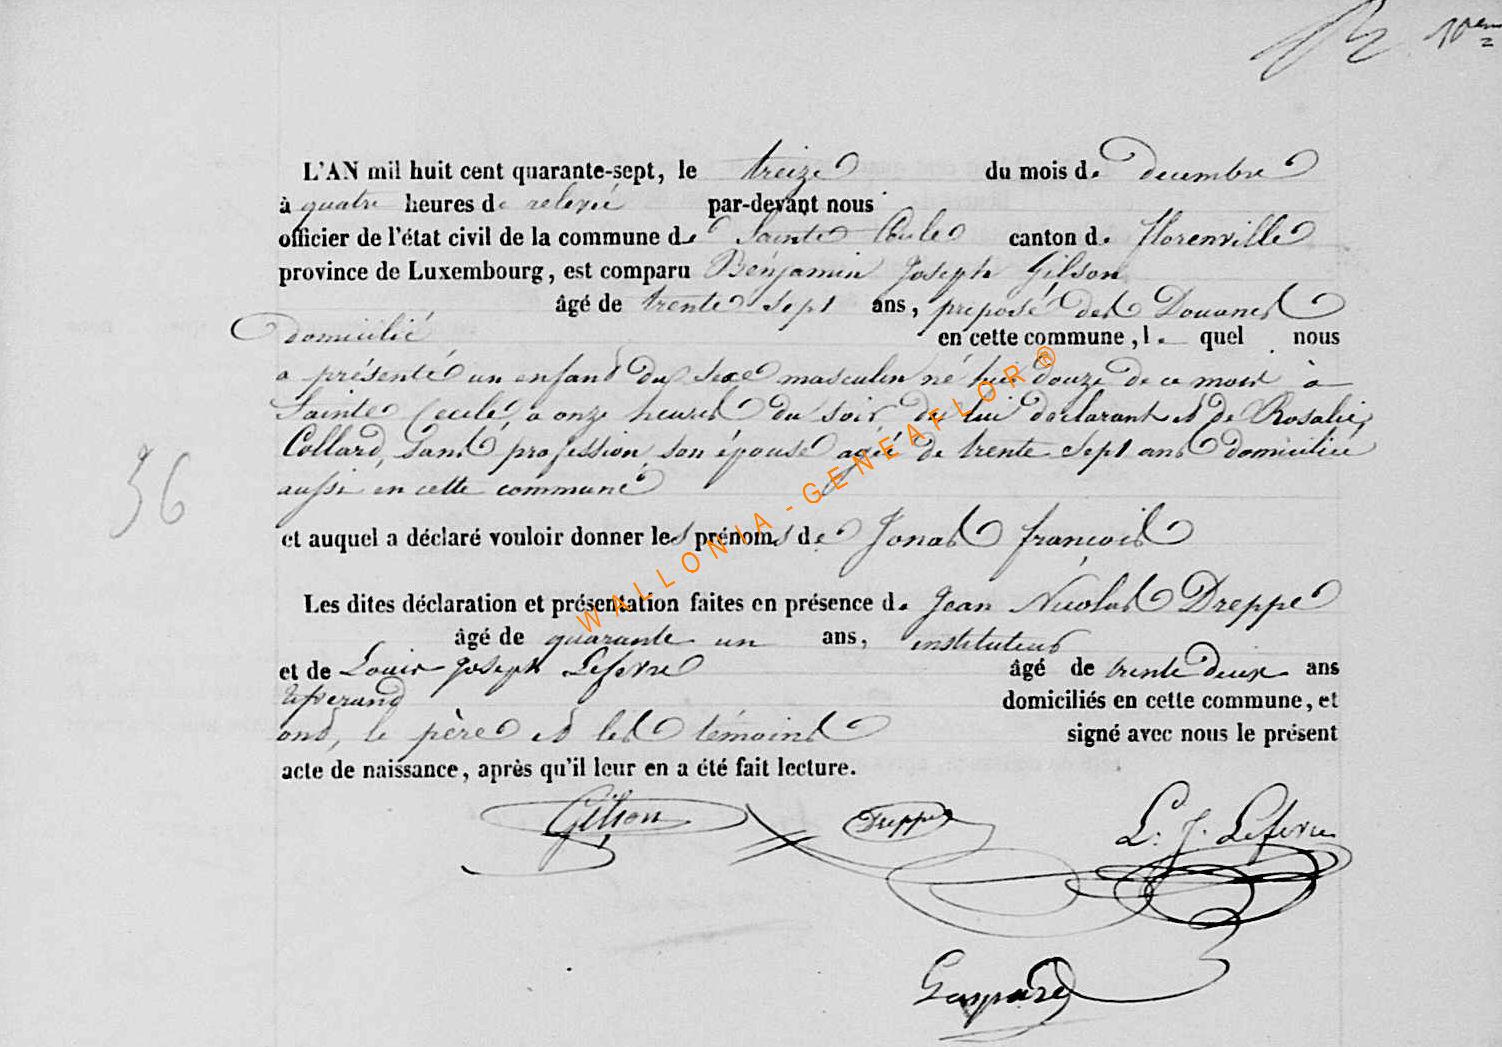 L'AN mil huit cent quarante-sept, le treize du mois de decembre
à quatre heures de relevée par-devant nous
officier de l'état civil de la commune de Sainte Cécile canton de Florenville
province de Luxembourg, est comparu Benjamin Joseph Gilson
âgé de trente sept ans, préposé des Douanes
domicilié en cette commune, le quel nous
a présenté un enfant du sexe masculin né hier douze de ce mois à
Sainte Cecile, a onze heures du soir de lui declarant et de Rosalie
Collard, sans profession, son épouse agée de trente sept ans domiciliée
aussi en cette commune
36
et auquel a déclaré vouloir donner les prénoms de Jonas françois
Les dites déclaration et présentation faites en présence de Jean Nicolas Dreppe
âgé de quarante un ans, instituteur
et de Louis Joseph Lefevre âgé de trente deux ans
domiciliés en cette commune, et
ont, le père et les témoins signé avec nous le présent
acte de naissance, après qu'il leur en a été fait lecture.
Gilson Dreppe L. J. Lefevre
Gaspard
WALLONIA - GENEAFLOR ®